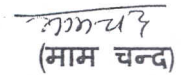 मामचन्द
(माम चन्द)